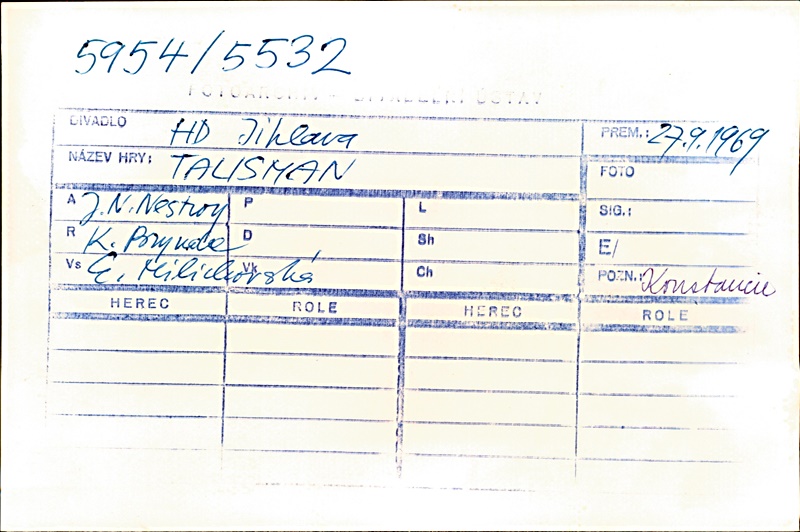 5954/5532
FOTOARCHIV - DIVADELNÍ ÚSTAV
DIVADLO HD Jihlava PREM.: 27.9.1969
NÁZEV HRY: TALISMAN FOTO
A J.N. Nestroy P L SIG.:
R K. D Sh E/
Vs Vk Ch POZN.: Konstancie
HEREC ROLE HEREC ROLE